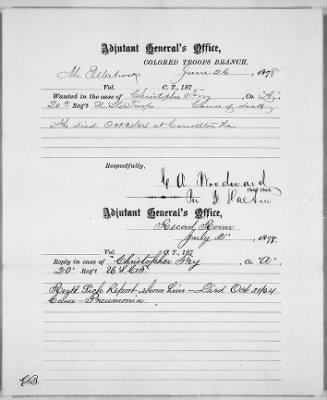 Adjutant General's Office,
COLORED TROOPS BRANCH.
June 26, 1878
Vol. C. T., 187
Wanted in the case of Christopher Fry, Co. "A,"
20th Reg't U.S.C. Troops Cause of death
He died Oct at Carrollton La
Respectfully,
G. A. Woodward
Chief Clerk.
Adjutant General's Office,
Record Room
July 2", 1878.
Vol. C. T., 187
Reply in case of Christopher Fry, Co. "A".
20" Reg't U.S.C.T.
Regtl Sick Report shows him - Died Oct 21/64
Cause - Pneumonia.